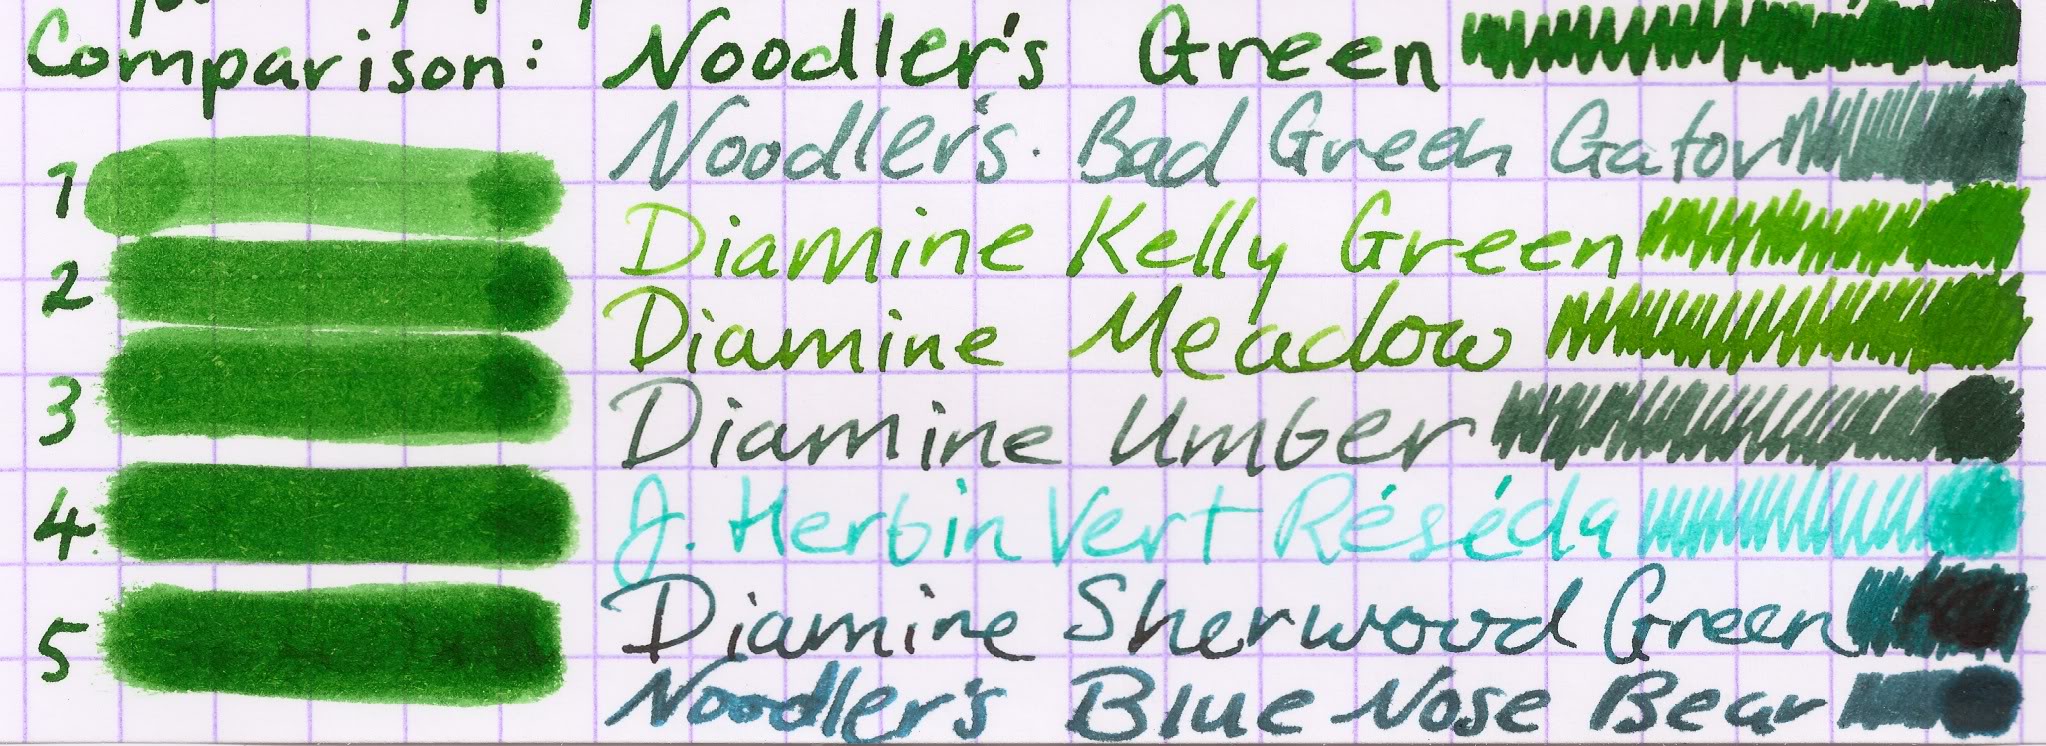 Comparison: Noodler's Green
Noodler's Bad Green Gator
1
Diamine Kelly Green
2
Diamine Meadow
3
Diamine Umber
4
J. Herbin Vert Réséda
5
Diamine Sherwood Green
Noodler's Blue Nose Bear